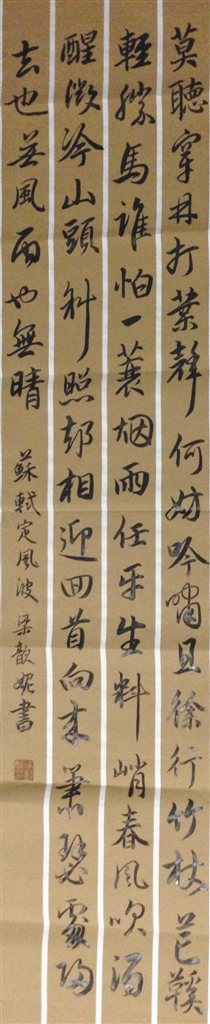 莫聽穿林打葉聲何妨吟嘯且徐行竹杖芒鞋
輕勝馬誰怕一蓑烟雨任平生料峭春風吹酒
醒微冷山頭斜照却相迎回首向來蕭瑟處歸
去也無風雨也無晴
蘇軾定風波 梁歆妮書